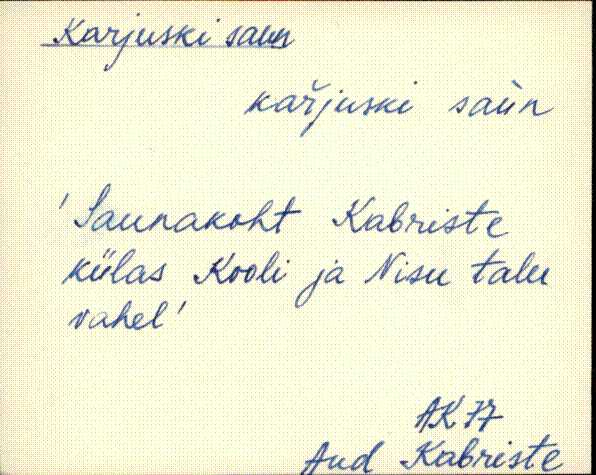 Karjuski saun
kařjuski saùn
'Saunakoht Kabriste
külas Kooli ja Nisu talu
vahel'
AK 77
Aud Kabriste